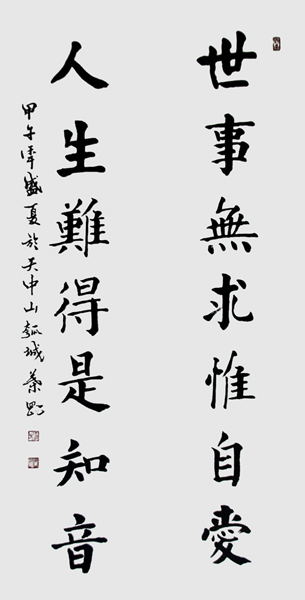 世事無求惟自愛
人生難得是知音
甲午年盛夏於天中山瓠城